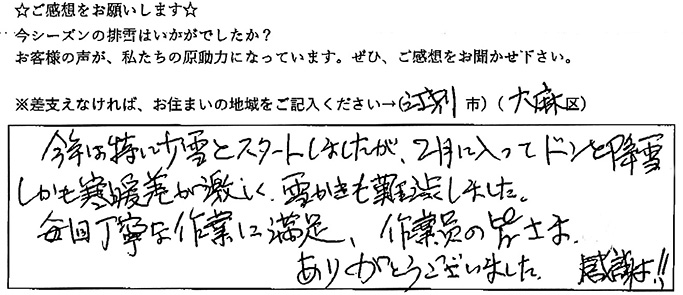 ☆ご感想をお願いします☆
今シーズンの排雪はいかがでしたか?
お客様の声が、私たちの原動力になっています。ぜひ、ご感想をお聞かせ下さい。
※差支えなければ、お住まいの地域をご記入ください→(江別市)(大麻区)
今年は特に少雪とスタートしましたが、2月に入ってドンと降雪
しかも寒暖差が激しく、雪かきも難渋しました。
毎回丁寧な作業に満足、作業員の皆さま
ありがとうございました。 感謝!!